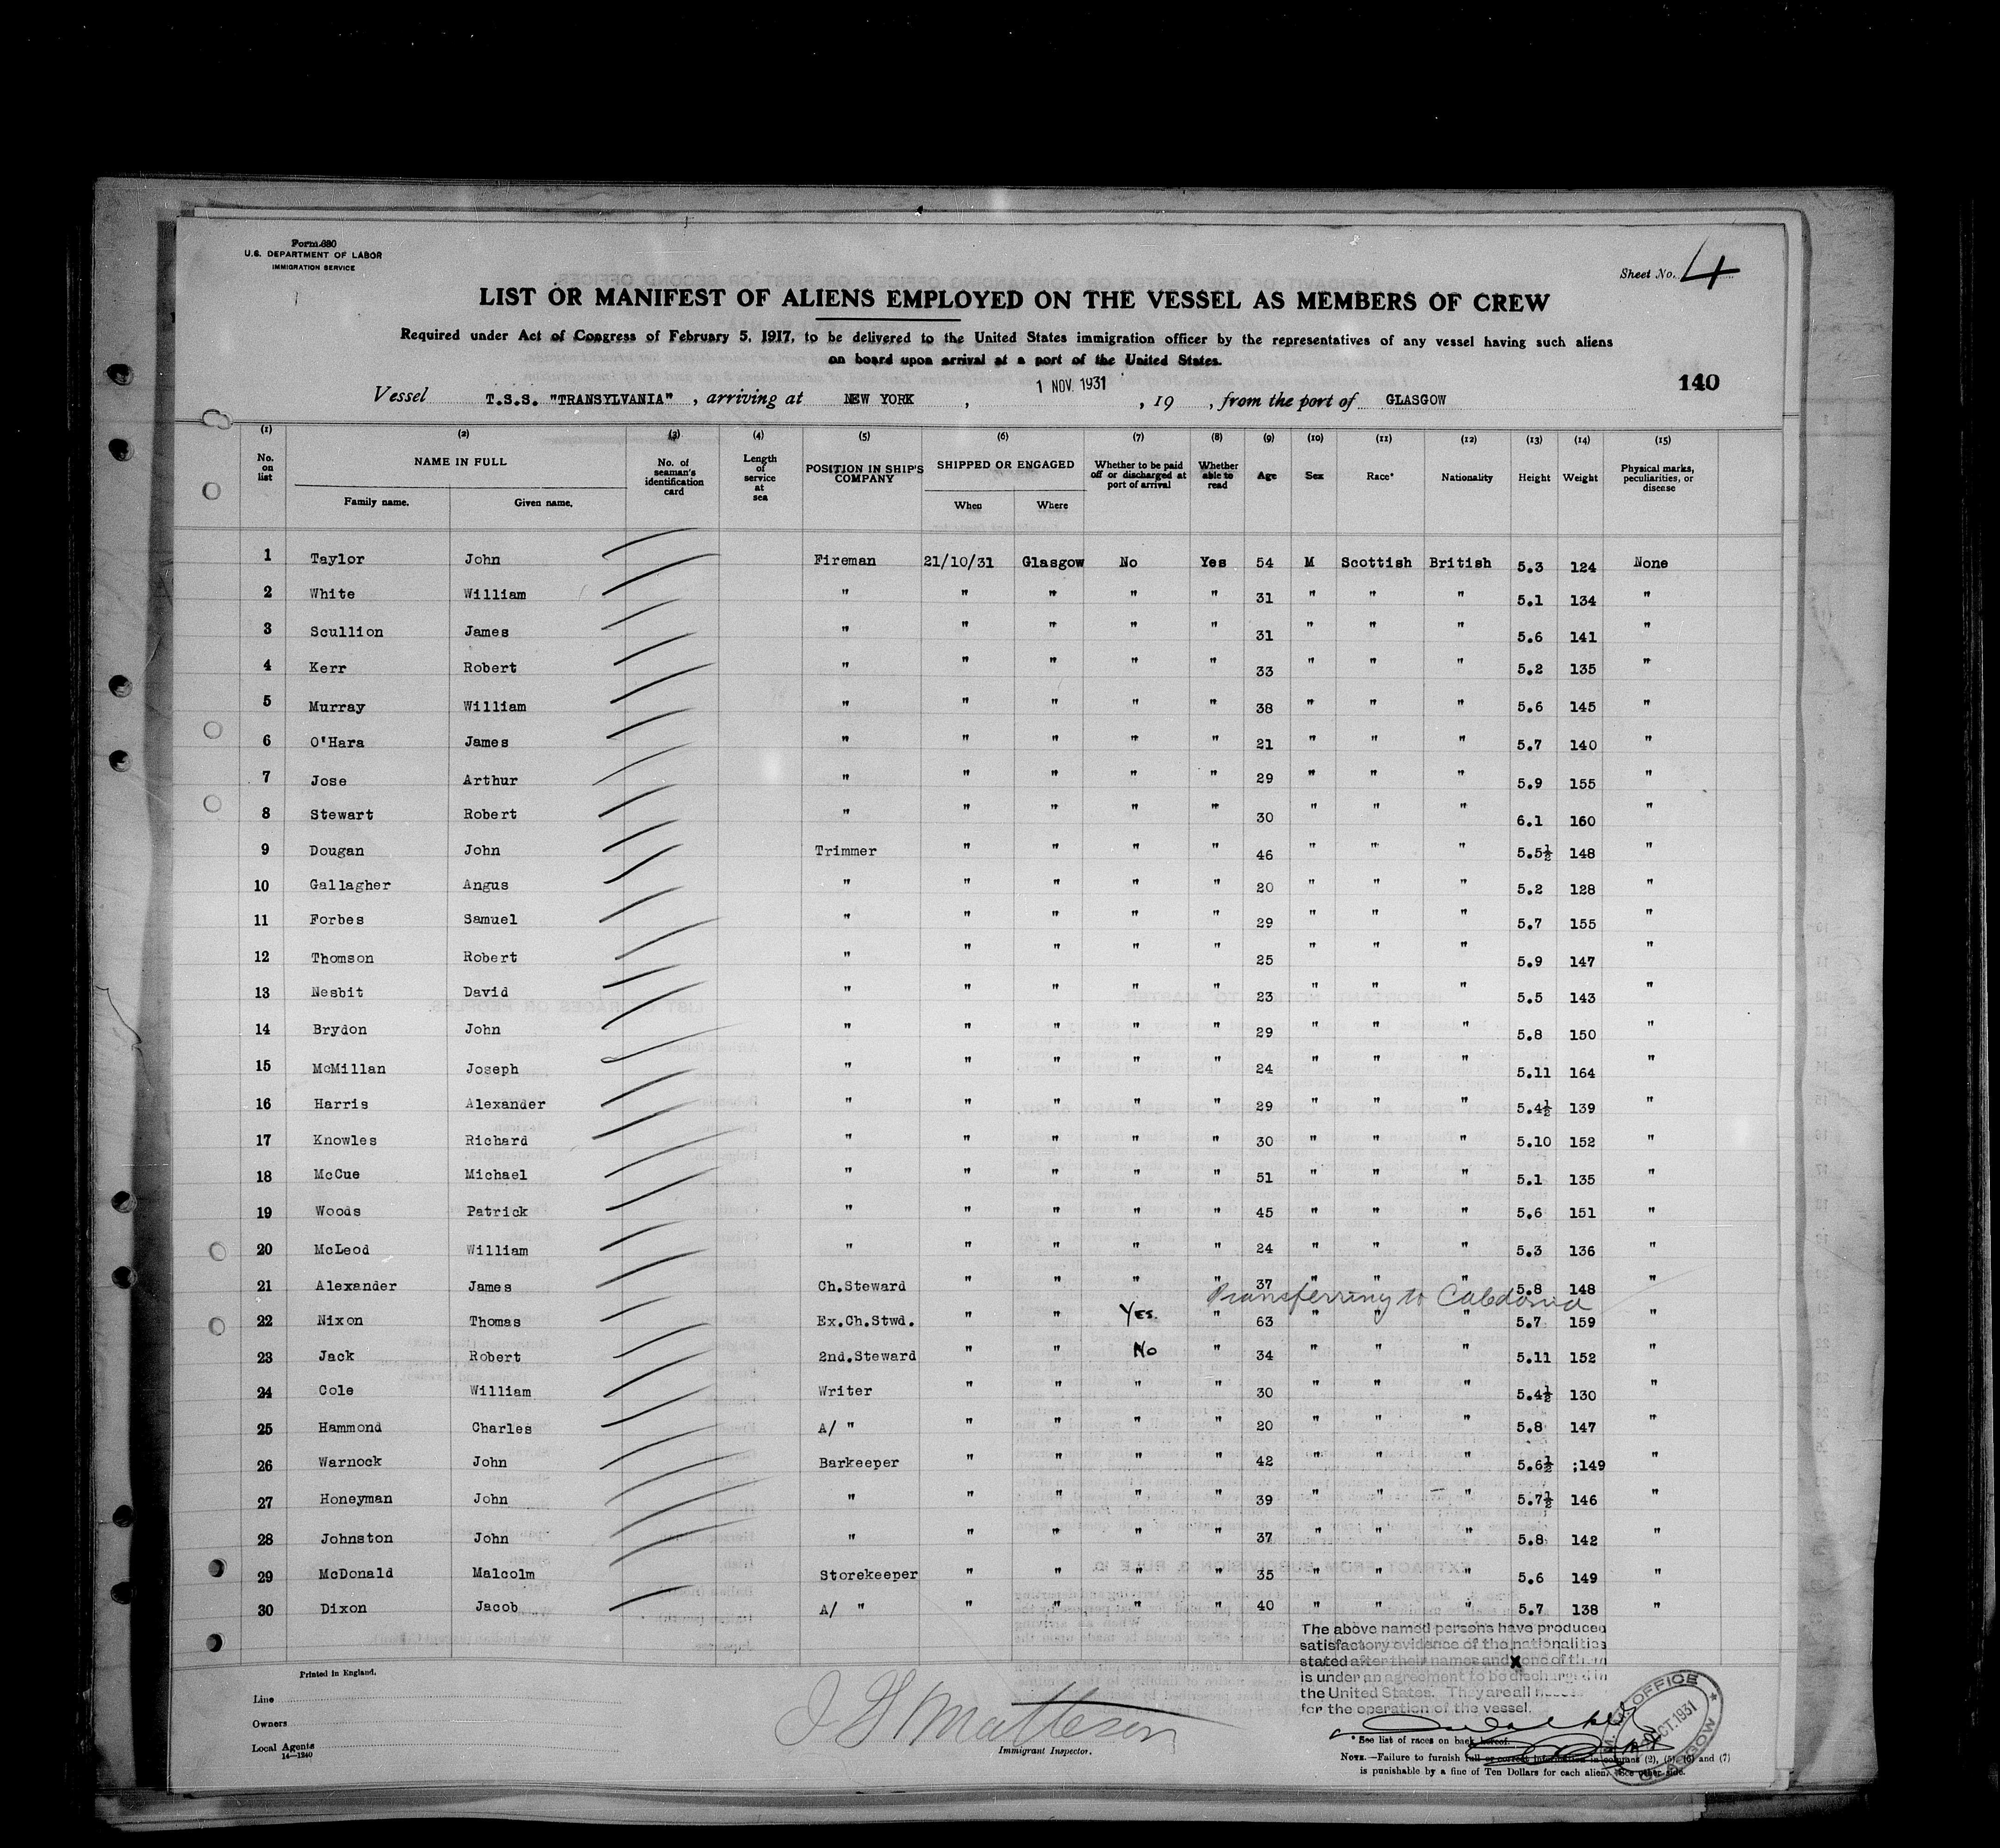 Form 680
U.S. DEPARTMENT OF LABOR
IMMIGRATION SERVICE
Sheet No. 4
LIST OR MANIFEST OF ALIENS EMPLOYED ON THE VESSEL AS MEMBERS OF CREW
Required under Act of Congress of February 5, 1917, to be delivered to the United States immigration officer by the representatives of any vessel having such aliens
on board upon arrival at a port of the United States.
140
Vessel T.S.S. "TRANSYLVANIA", arriving at NEW YORK, 1 NOV. 1931, 19 , from the port of GLASGOW
(1) (2) (3) (4) (5) (6) (7) (8) (9) (10) (11) (12) (13) (14) (15)
No. on list NAME IN FULL Family name. Given name. No. of seaman's identification card Length of service at sea POSITION IN SHIP'S COMPANY SHIPPED OR ENGAGED When Where Whether to be paid off or discharged at port of arrival Whether able to read Age Sex Race* Nationality Height Weight Physical marks, peculiarities, or disease
1 Taylor John Fireman 21/10/31 Glasgow No Yes 54 M Scottish British 5.3 124 None
2 White William " " " " " 31 " " " 5.1 134 "
3 Scullion James " " " " " 31 " " " 5.6 141 "
4 Kerr Robert " " " " " 33 " " " 5.2 135 "
5 Murray William " " " " " 38 " " " 5.6 145 "
6 O'Hara James " " " " " 21 " " " 5.7 140 "
7 Jose Arthur " " " " " 29 " " " 5.9 155 "
8 Stewart Robert " " " " " 30 " " " 6.1 160 "
9 Dougan John Trimmer " " " " 46 " " " 5.5½ 148 "
10 Gallagher Angus " " " " " 20 " " " 5.2 128 "
11 Forbes Samuel " " " " " 29 " " " 5.7 155 "
12 Thomson Robert " " " " " 25 " " " 5.9 147 "
13 Nesbit David " " " " " 23 " " " 5.5 143 "
14 Brydon John " " " " " 29 " " " 5.8 150 "
15 McMillan Joseph " " " " " 24 " " " 5.11 164 "
16 Harris Alexander " " " " " 29 " " " 5.4½ 139 "
17 Knowles Richard " " " " " 30 " " " 5.10 152 "
18 McCue Michael " " " " " 51 " " " 5.1 135 "
19 Woods Patrick " " " " " 45 " " " 5.6 151 "
20 McLeod William " " " " " 24 " " " 5.3 136 "
21 Alexander James Ch.Steward " " " " 37 " " " 5.8 148 "
Transferring to Caledonia
22 Nixon Thomas Ex.Ch.Stwd. " " YES. " 63 " " " 5.7 159 "
23 Jack Robert 2nd.Steward " " No " 34 " " " 5.11 152 "
24 Cole William Writer " " " " 30 " " " 5.4½ 130 "
25 Hammond Charles A/ " " " " " 20 " " " 5.8 147 "
26 Warnock John Barkeeper " " " " 42 " " " 5.6½ ;149 "
27 Honeyman John " " " " " 39 " " " 5.7½ 146 "
28 Johnston John " " " " " 37 " " " 5.8 142 "
29 McDonald Malcolm Storekeeper " " " " 35 " " " 5.6 149 "
30 Dixon Jacob A/ " " " " " 40 " " " 5.7 138 "
The above named persons have produced
satisfactory evidence of the nationalities
stated after their names and x one of them
is under an agreement to be discharged in
the United States. They are all
for the operation of the vessel.
Printed in England.
Line
Owners
Local Agents
14—1240
J Matteson
Immigrant Inspector.
OFFICE
OCT. 1931
GLASGOW
* See list of races on back hereof.
NOTE.—Failure to furnish full or correct information in columns (2), (5), (6) and (7)
is punishable by a fine of Ten Dollars for each alien. See other side.